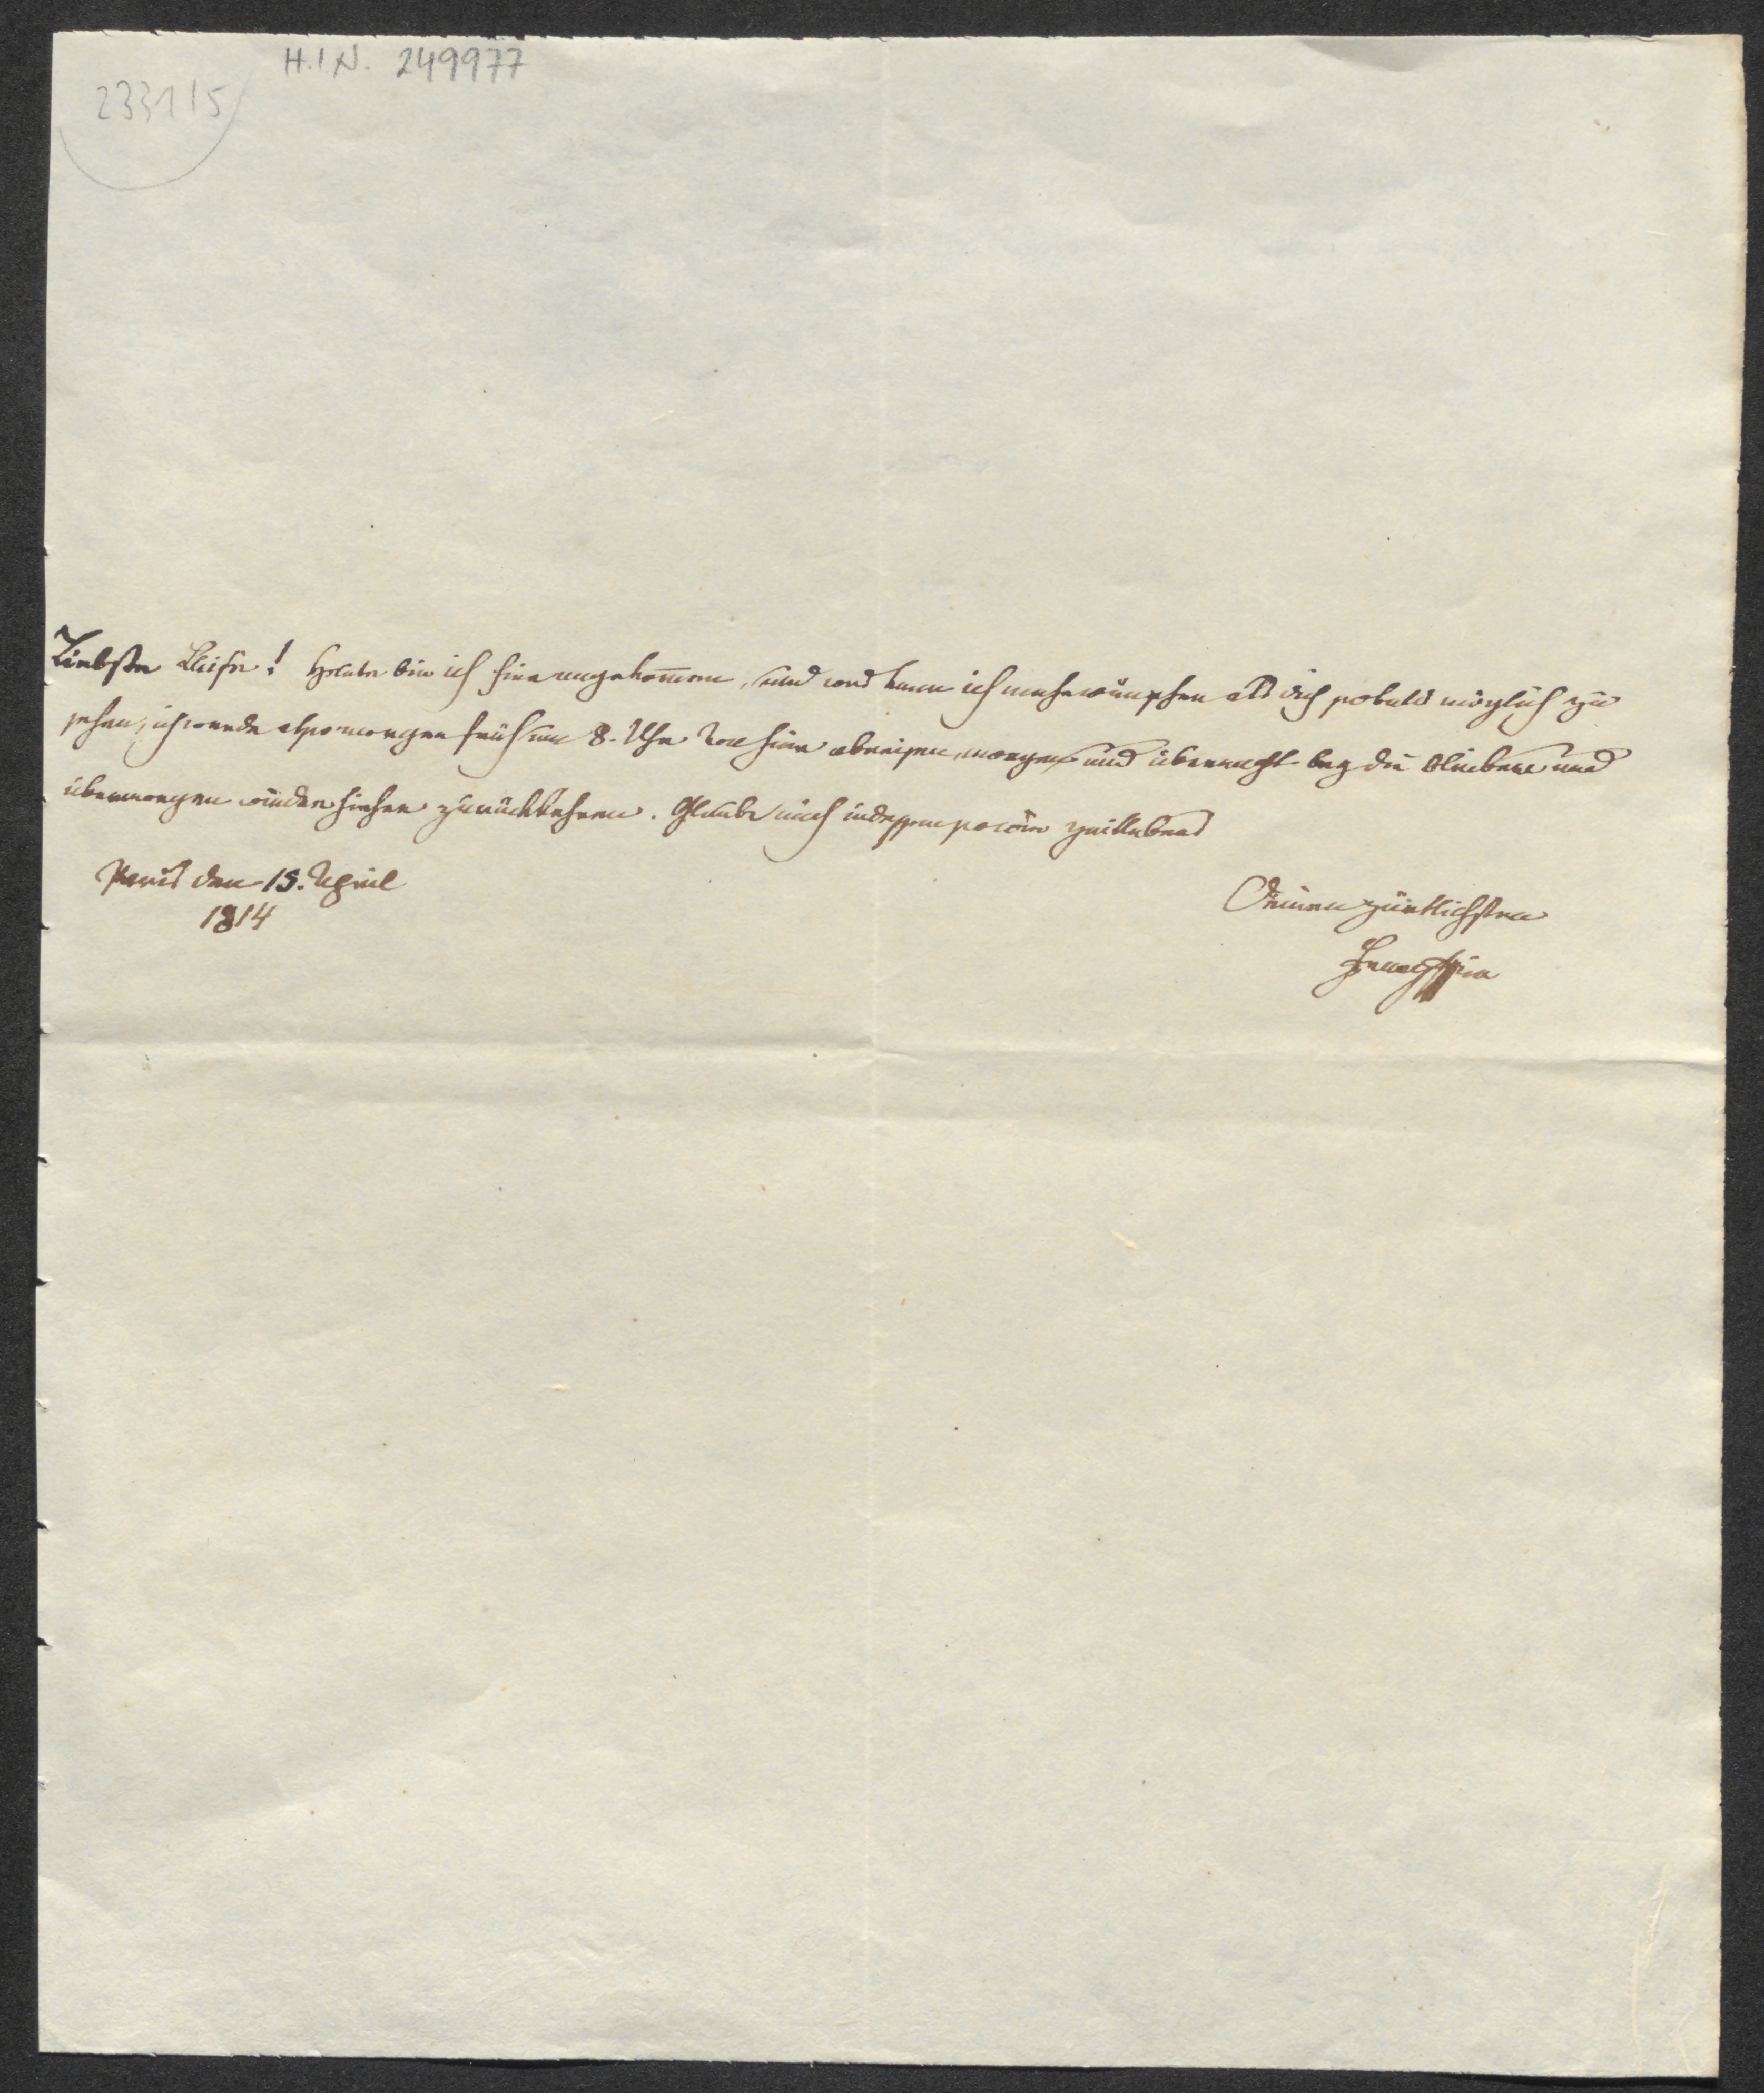 H.I.N. 249977
233115
Liebste Luise! Heute bin ich hier angekom̄en, und was kann ich mehr wünschen als dich sobald möglich zu
sehen, ich werde also morgen früh um 8. Uhr von hier abreisen, morgen und übernacht bey dir bleiben und
übermorgen wieder hieher zurückkehren. Glaube mich indessen so wie zeitlebens
Paris den 15. April
1814
Deinen zärtlichsten
Franz